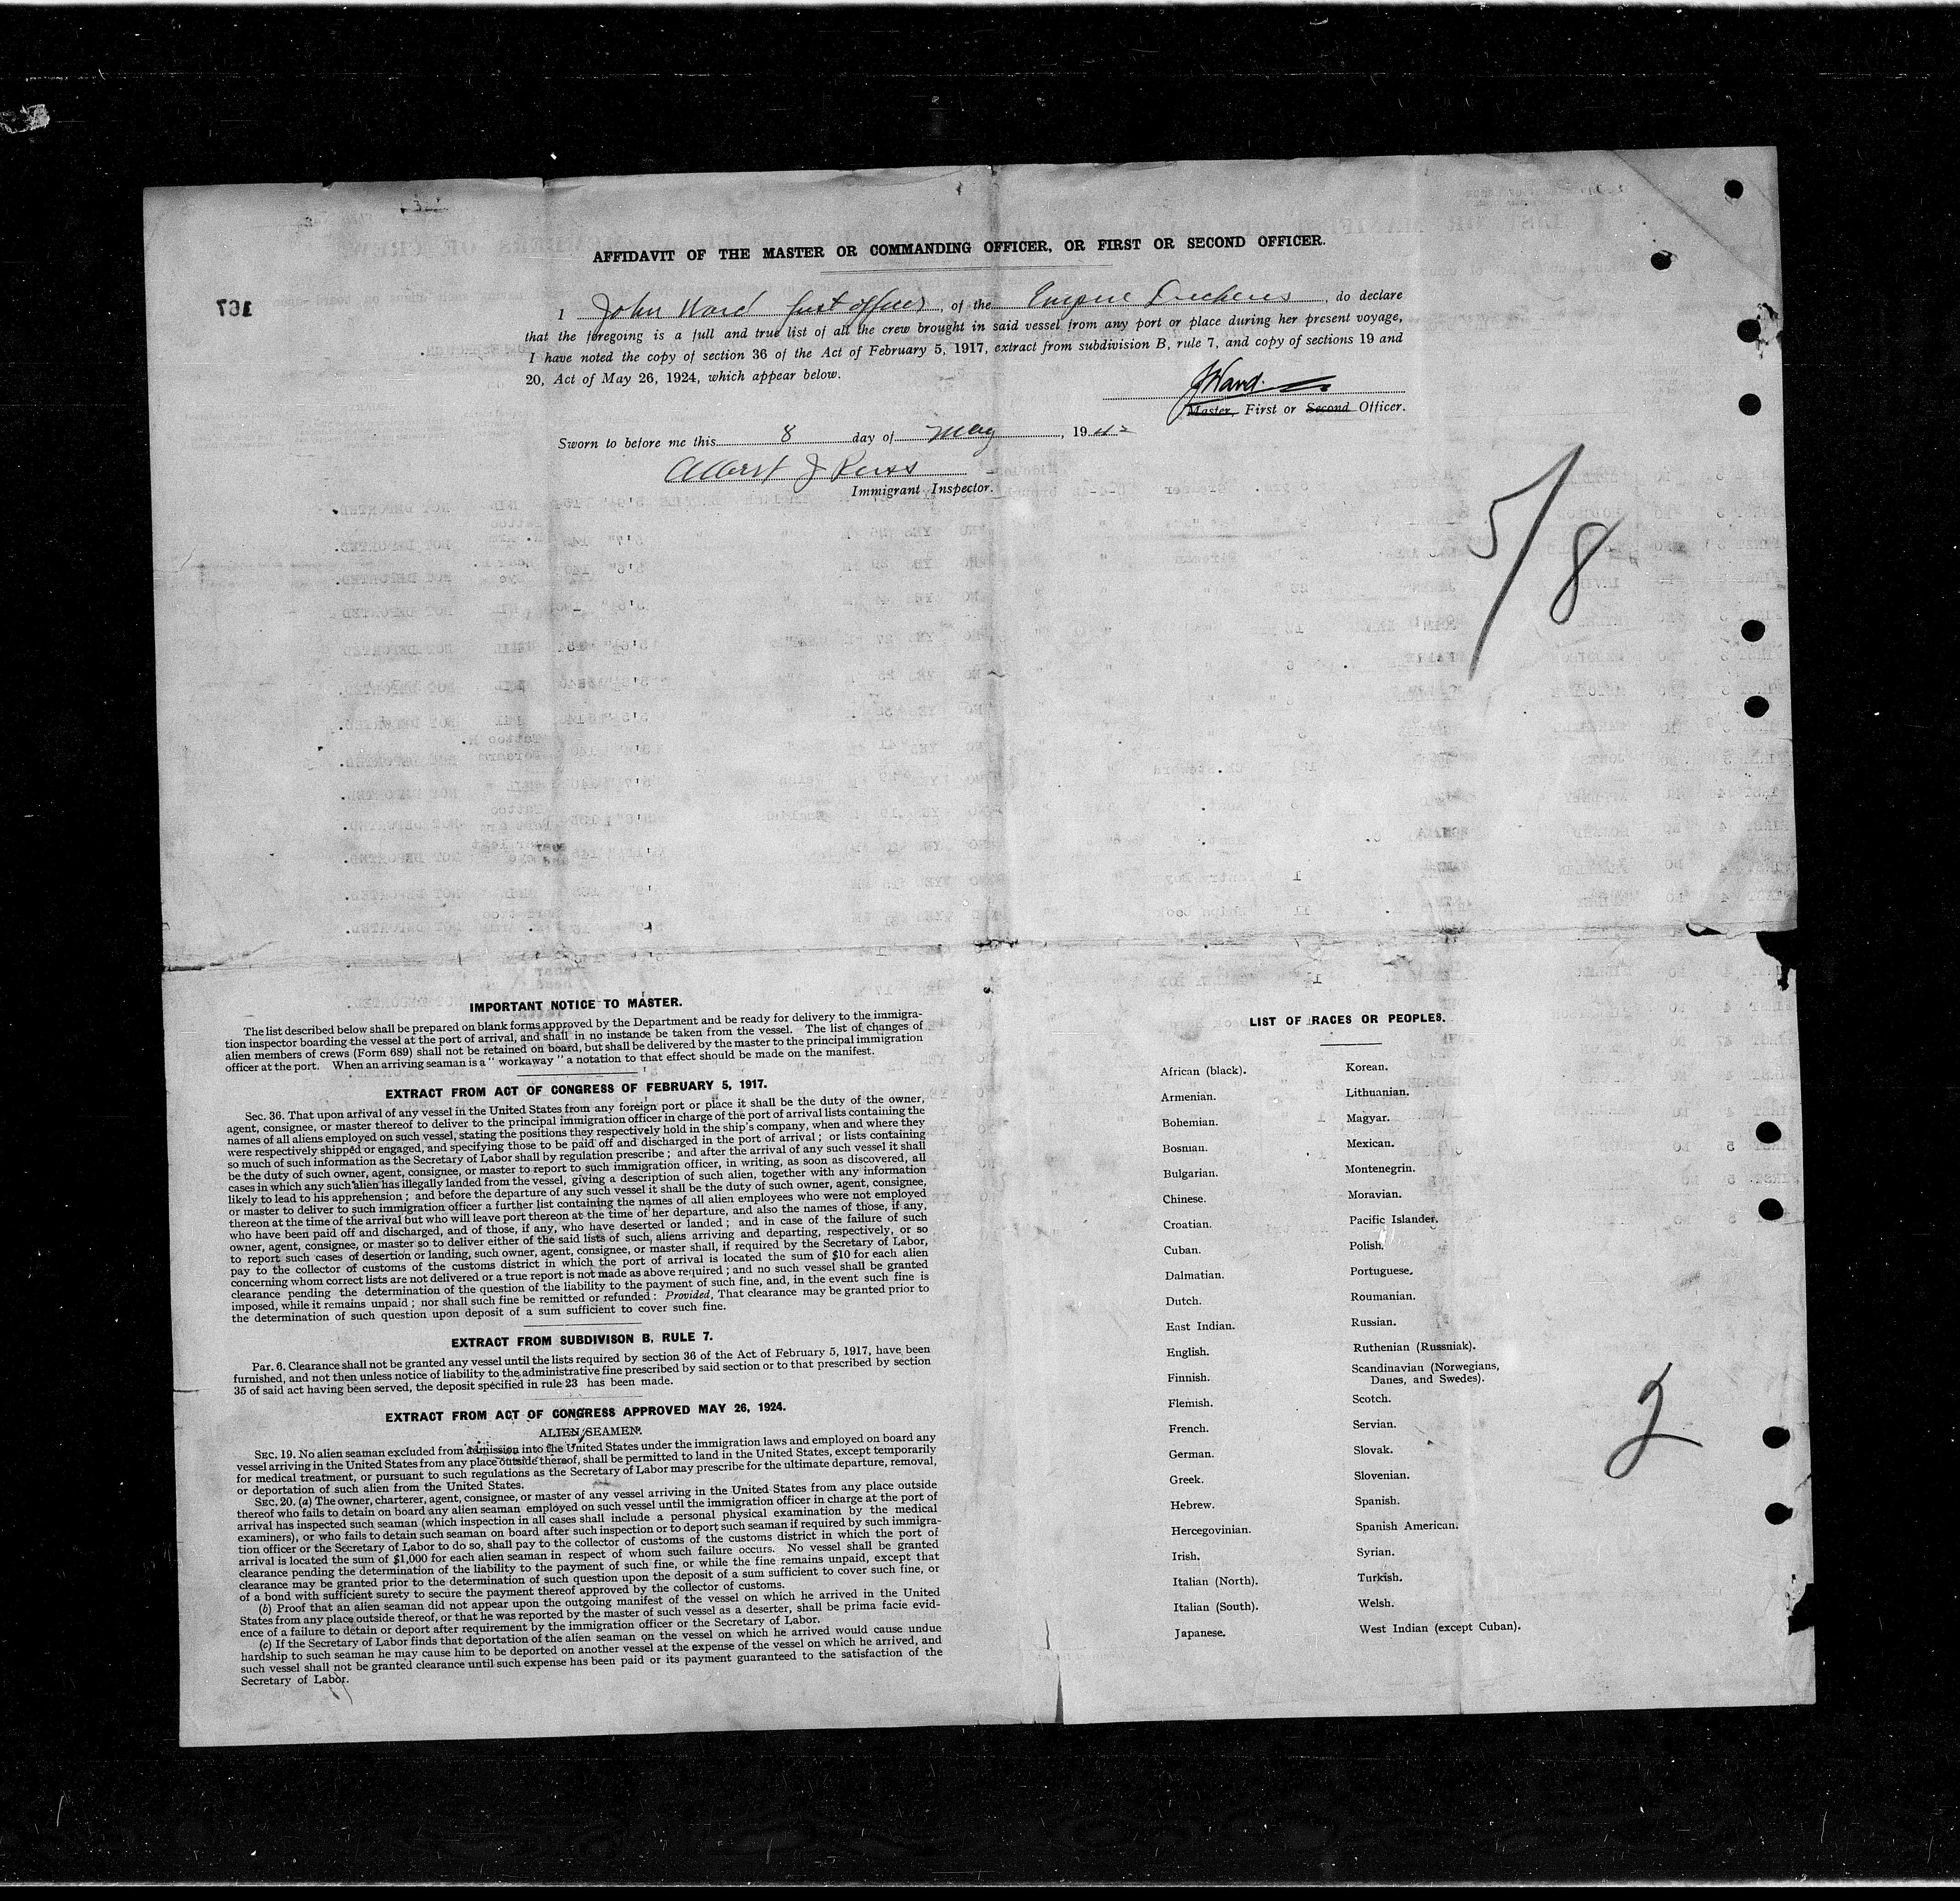 AFFIDAVIT OF THE MASTER OR COMMANDING OFFICER, OR FIRST OR SECOND OFFICER.
I John Ward first officer, of the Empire, do declare
that the foregoing is a full and true list of all the crew brought in said vessel from any port or place during her present voyage,
I have noted the copy of section 36 of the Act of February 5, 1917, extract from subdivision B, rule 7, and copy of sections 19 and
20, Act of May 26, 1924, which appear below.
JWard.
Master, First or Second Officer.
Sworn to before me this 8 day of May, 1942
Albert J
Immigrant Inspector.
167
5/8
IMPORTANT NOTICE TO MASTER.
The list described below shall be prepared on blank forms approved by the Department and be ready for delivery to the immigra-
tion inspector boarding the vessel at the port of arrival, and shall in no instance be taken from the vessel. The list of changes of
alien members of crews (Form 689) shall not be retained on board, but shall be delivered by the master to the principal immigration
officer at the port. When an arriving seaman is a " workaway " a notation to that effect should be made on the manifest.
EXTRACT FROM ACT OF CONGRESS OF FEBRUARY 5, 1917.
Sec. 36. That upon arrival of any vessel in the United States from any foreign port or place it shall be the duty of the owner,
agent, consignee, or master thereof to deliver to the principal immigration officer in charge of the port of arrival lists containing the
names of all aliens employed on such vessel, stating the positions they respectively hold in the ship's company, when and where they
were respectively shipped or engaged, and specifying those to be paid off and discharged in the port of arrival ; or lists containing
so much of such information as the Secretary of Labor shall by regulation prescribe ; and after the arrival of any such vessel it shall
be the duty of such owner, agent, consignee, or master to report to such immigration officer, in writing, as soon as discovered, all
cases in which any such alien has illegally landed from the vessel, giving a description of such alien, together with any information
likely to lead to his apprehension ; and before the departure of any such vessel it shall be the duty of such owner, agent, consignee,
or master to deliver to such immigration officer a further list containing the names of all alien employees who were not employed
thereon at the time of the arrival but who will leave port thereon at the time of her departure, and also the names of those, if any,
who have been paid off and discharged, and of those, if any, who have deserted or landed ; and in case of the failure of such
owner, agent, consignee, or master so to deliver either of the said lists of such, aliens arriving and departing, respectively, or so
to report such cases of desertion or landing, such owner, agent, consignee, or master shall, if required by the Secretary of Labor,
pay to the collector of customs of the customs district in which the port of arrival is located the sum of $10 for each alien
concerning whom correct lists are not delivered or a true report is not made as above required ; and no such vessel shall be granted
clearance pending the determination of the question of the liability to the payment of such fine, and, in the event such fine is
imposed, while it remains unpaid ; nor shall such fine be remitted or refunded : Provided, That clearance may be granted prior to
the determination of such question upon deposit of a sum sufficient to cover such fine.
EXTRACT FROM SUBDIVISON B, RULE 7.
Par. 6. Clearance shall not be granted any vessel until the lists required by section 36 of the Act of February 5, 1917, have been
furnished, and not then unless notice of liability to the administrative fine prescribed by said section or to that prescribed by section
35 of said act having been served, the deposit specified in rule 23 has been made.
EXTRACT FROM ACT OF CONGRESS APPROVED MAY 26, 1924.
ALIEN SEAMEN.
SEC. 19. No alien seaman excluded from admission into the United States under the immigration laws and employed on board any
vessel arriving in the United States from any place outside thereof, shall be permitted to land in the United States, except temporarily
for medical treatment, or pursuant to such regulations as the Secretary of Labor may prescribe for the ultimate departure, removal,
or deportation of such alien from the United States.
SEC. 20. (a) The owner, charterer, agent, consignee, or master of any vessel arriving in the United States from any place outside
thereof who fails to detain on board any alien seaman employed on such vessel until the immigration officer in charge at the port of
arrival has inspected such seaman (which inspection in all cases shall include a personal physical examination by the medical
examiners), or who fails to detain such seaman on board after such inspection or to deport such seaman if required by such immigra-
tion officer or the Secretary of Labor to do so, shall pay to the collector of customs of the customs district in which the port of
arrival is located the sum of $1,000 for each alien seaman in respect of whom such failure occurs. No vessel shall be granted
clearance pending the determination of the liability to the payment of such fine, or while the fine remains unpaid, except that
clearance may be granted prior to the determination of such question upon the deposit of a sum sufficient to cover such fine, or
of a bond with sufficient surety to secure the payment thereof approved by the collector of customs.
(b) Proof that an alien seaman did not appear upon the outgoing manifest of the vessel on which he arrived in the United
States from any place outside thereof, or that he was reported by the master of such vessel as a deserter, shall be prima facie evid-
ence of a failure to detain or deport after requirement by the immigration officer or the Secretary of Labor.
(c) If the Secretary of Labor finds that deportation of the alien seaman on the vessel on which he arrived would cause undue
hardship to such seaman he may cause him to be deported on another vessel at the expense of the vessel on which he arrived, and
such vessel shall not be granted clearance until such expense has been paid or its payment guaranteed to the satisfaction of the
Secretary of Labor.
LIST OF RACES OR PEOPLES.
African (black).
Armenian.
Bohemian.
Bosnian.
Bulgarian.
Chinese.
Croatian.
Cuban.
Dalmatian.
Dutch.
East Indian.
English.
Finnish.
Flemish.
French.
German.
Greek.
Hebrew.
Hercegovinian.
Irish.
Italian (North).
Italian (South).
Japanese.
Korean.
Lithuanian.
Magyar.
Mexican.
Montenegrin.
Moravian.
Pacific Islander.
Polish.
Portuguese.
Roumanian.
Russian.
Ruthenian (Russniak).
Scandinavian (Norwegians,
Danes, and Swedes).
Scotch.
Servian.
Slovak.
Slovenian.
Spanish.
Spanish American.
Syrian.
Turkish.
Welsh.
West Indian (except Cuban).
2